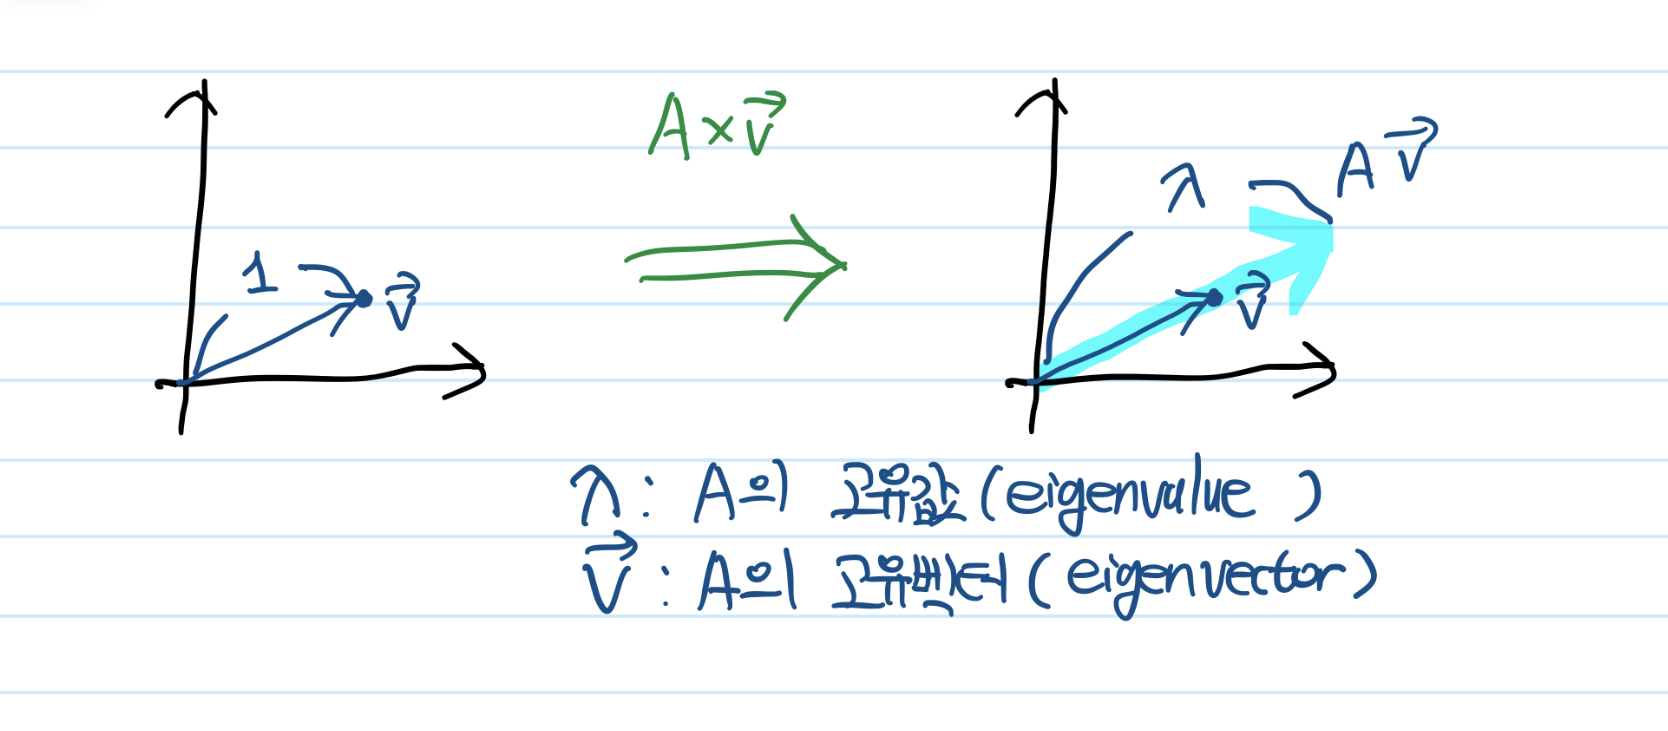 A × v⃗
1
v⃗
λ
A v⃗
v⃗
λ : A의 고유값 (eigenvalue )
v⃗ : A의 고유벡터 (eigenvector)